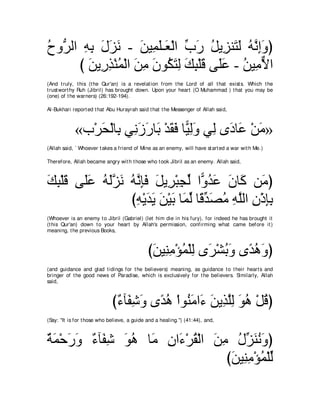 (وَإِنَّهُ لَتَنزِيلُ رَبِّ الْعَـلَمِينَ - نَزَلَ بِهِ الرُّوحُ
الاٌّمِينُ - عَلَى قَلْبِكَ لِتَكُونَ مِنَ الْمُنْذِرِينَ )
(And truly, this (the Qur'an) is a revelation from the Lord of all that exists. Which the
trustworthy Ruh (Jibril) has brought down. Upon your heart (O Muhammad ) that you may be
(one) of the warners) (26:192-194).
Al-Bukhari reported that Abu Hurayrah said that the Messenger of Allah said,
«مَنْ عَادَى لِي وَلِيًّا فَقَدْ بَارَزَنِي بِالْحَرْب»
(Allah said, `Whoever takes a friend of Mine as an enemy, will have started a war with Me.)
Therefore, Allah became angry with those who took Jibril as an enemy. Allah said,
(مَن كَانَ عَدُوًّا لِّجِبْرِيلَ فَإِنَّهُ نَزَّلَهُ عَلَى قَلْبِكَ
بِإِذْنِ اللَّهِ مُصَدِّقًا لِّمَا بَيْنَ يَدَيْهِ)
(Whoever is an enemy to Jibril (Gabriel) (let him die in his fury), for indeed he has brought it
(this Qur'an) down to your heart by Allah's permission, confirming what came before it)
meaning, the previous Books,
(وَهُدًى وَبُشْرَى لِلْمُؤْمِنِينَ)
(and guidance and glad tidings for the believers) meaning, as guidance to their hearts and
bringer of the good news of Paradise, which is exclusively for the believers. Similarly, Allah
said,
(قُلْ هُوَ لِلَّذِينَ ءَامَنُواْ هُدًى وَشِفَآءٌ)
(Say: "It is for those who believe, a guide and a healing.") (41:44), and,
(وَنُنَزِّلُ مِنَ الْقُرْءَانِ مَا هُوَ شِفَآءٌ وَرَحْمَةٌ
لِّلْمُؤْمِنِينَ)